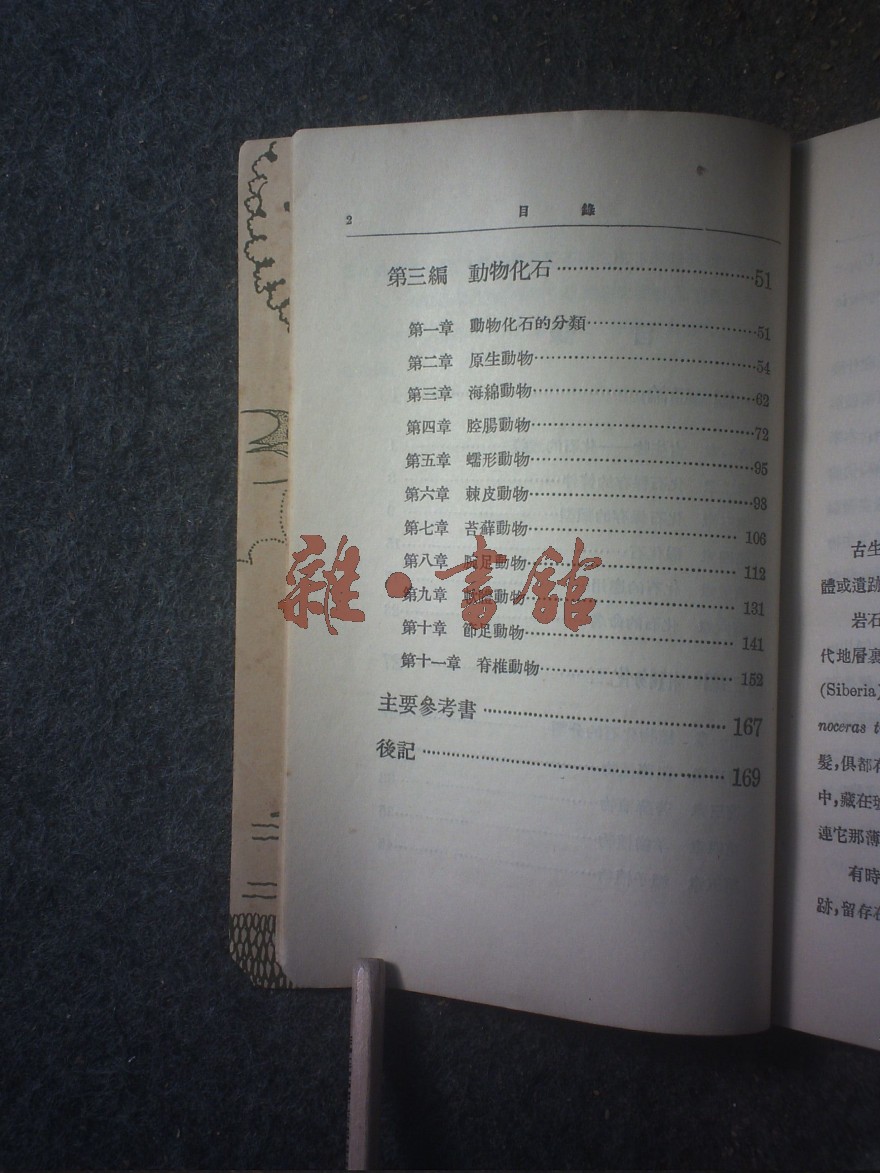 2 目錄
第三編 動物化石……51
第一章 動物化石的分類……51
第二章 原生動物……54
第三章 海綿動物……62
第四章 腔腸動物……72
第五章 蠕形動物……95
第六章 棘皮動物……98
第七章 苔蘚動物……106
第八章 腕足動物……112
第九章 動物……131
第十章 節足動物……141
第十一章 脊椎動物……152
主要參考書……167
後記……169
雜·書館
古生
體或遺跡
岩石
代地層裏
(Siberia)
noceras t
髮,俱都有
中,藏在
連它那薄
有時
跡,留存在